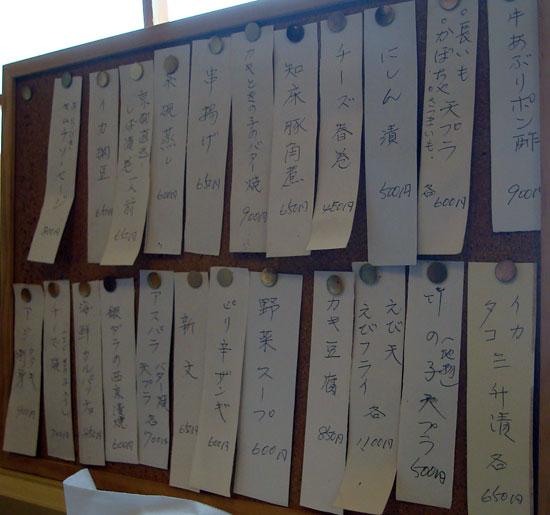 牛あぶりポン酢
900円
長いも
かぼちゃ 天プラ
さつまいも
各 600円
にしん漬
500円
チーズ春巻
450円
知床豚角煮
650円
カキときの子のバター焼
900円
串揚げ
650円
茶碗蒸し
600円
イカ納豆
650円
イカ
タコ 三升漬 各
650円
竹の子天プラ
(地物)
500円
えび天
えびフライ 各
1100円
カキ豆腐
850円
野菜スープ
600円
ピリ辛ザンギ
600円
新文
650円
アスパラ バター焼
天プラ 各
700円
銀ダラの西京漬焼
600円
海鮮カルパッチョ